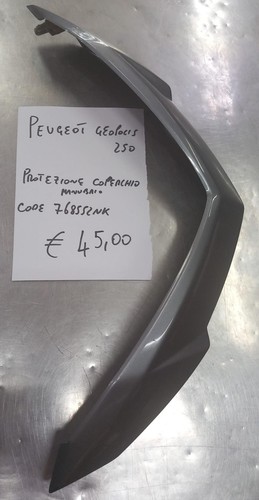 PEUGEOT GEOPOLIS
250
PROTEZIONE COPERCHIO
MANUBRIO
CODE 768552NK
€ 45,00